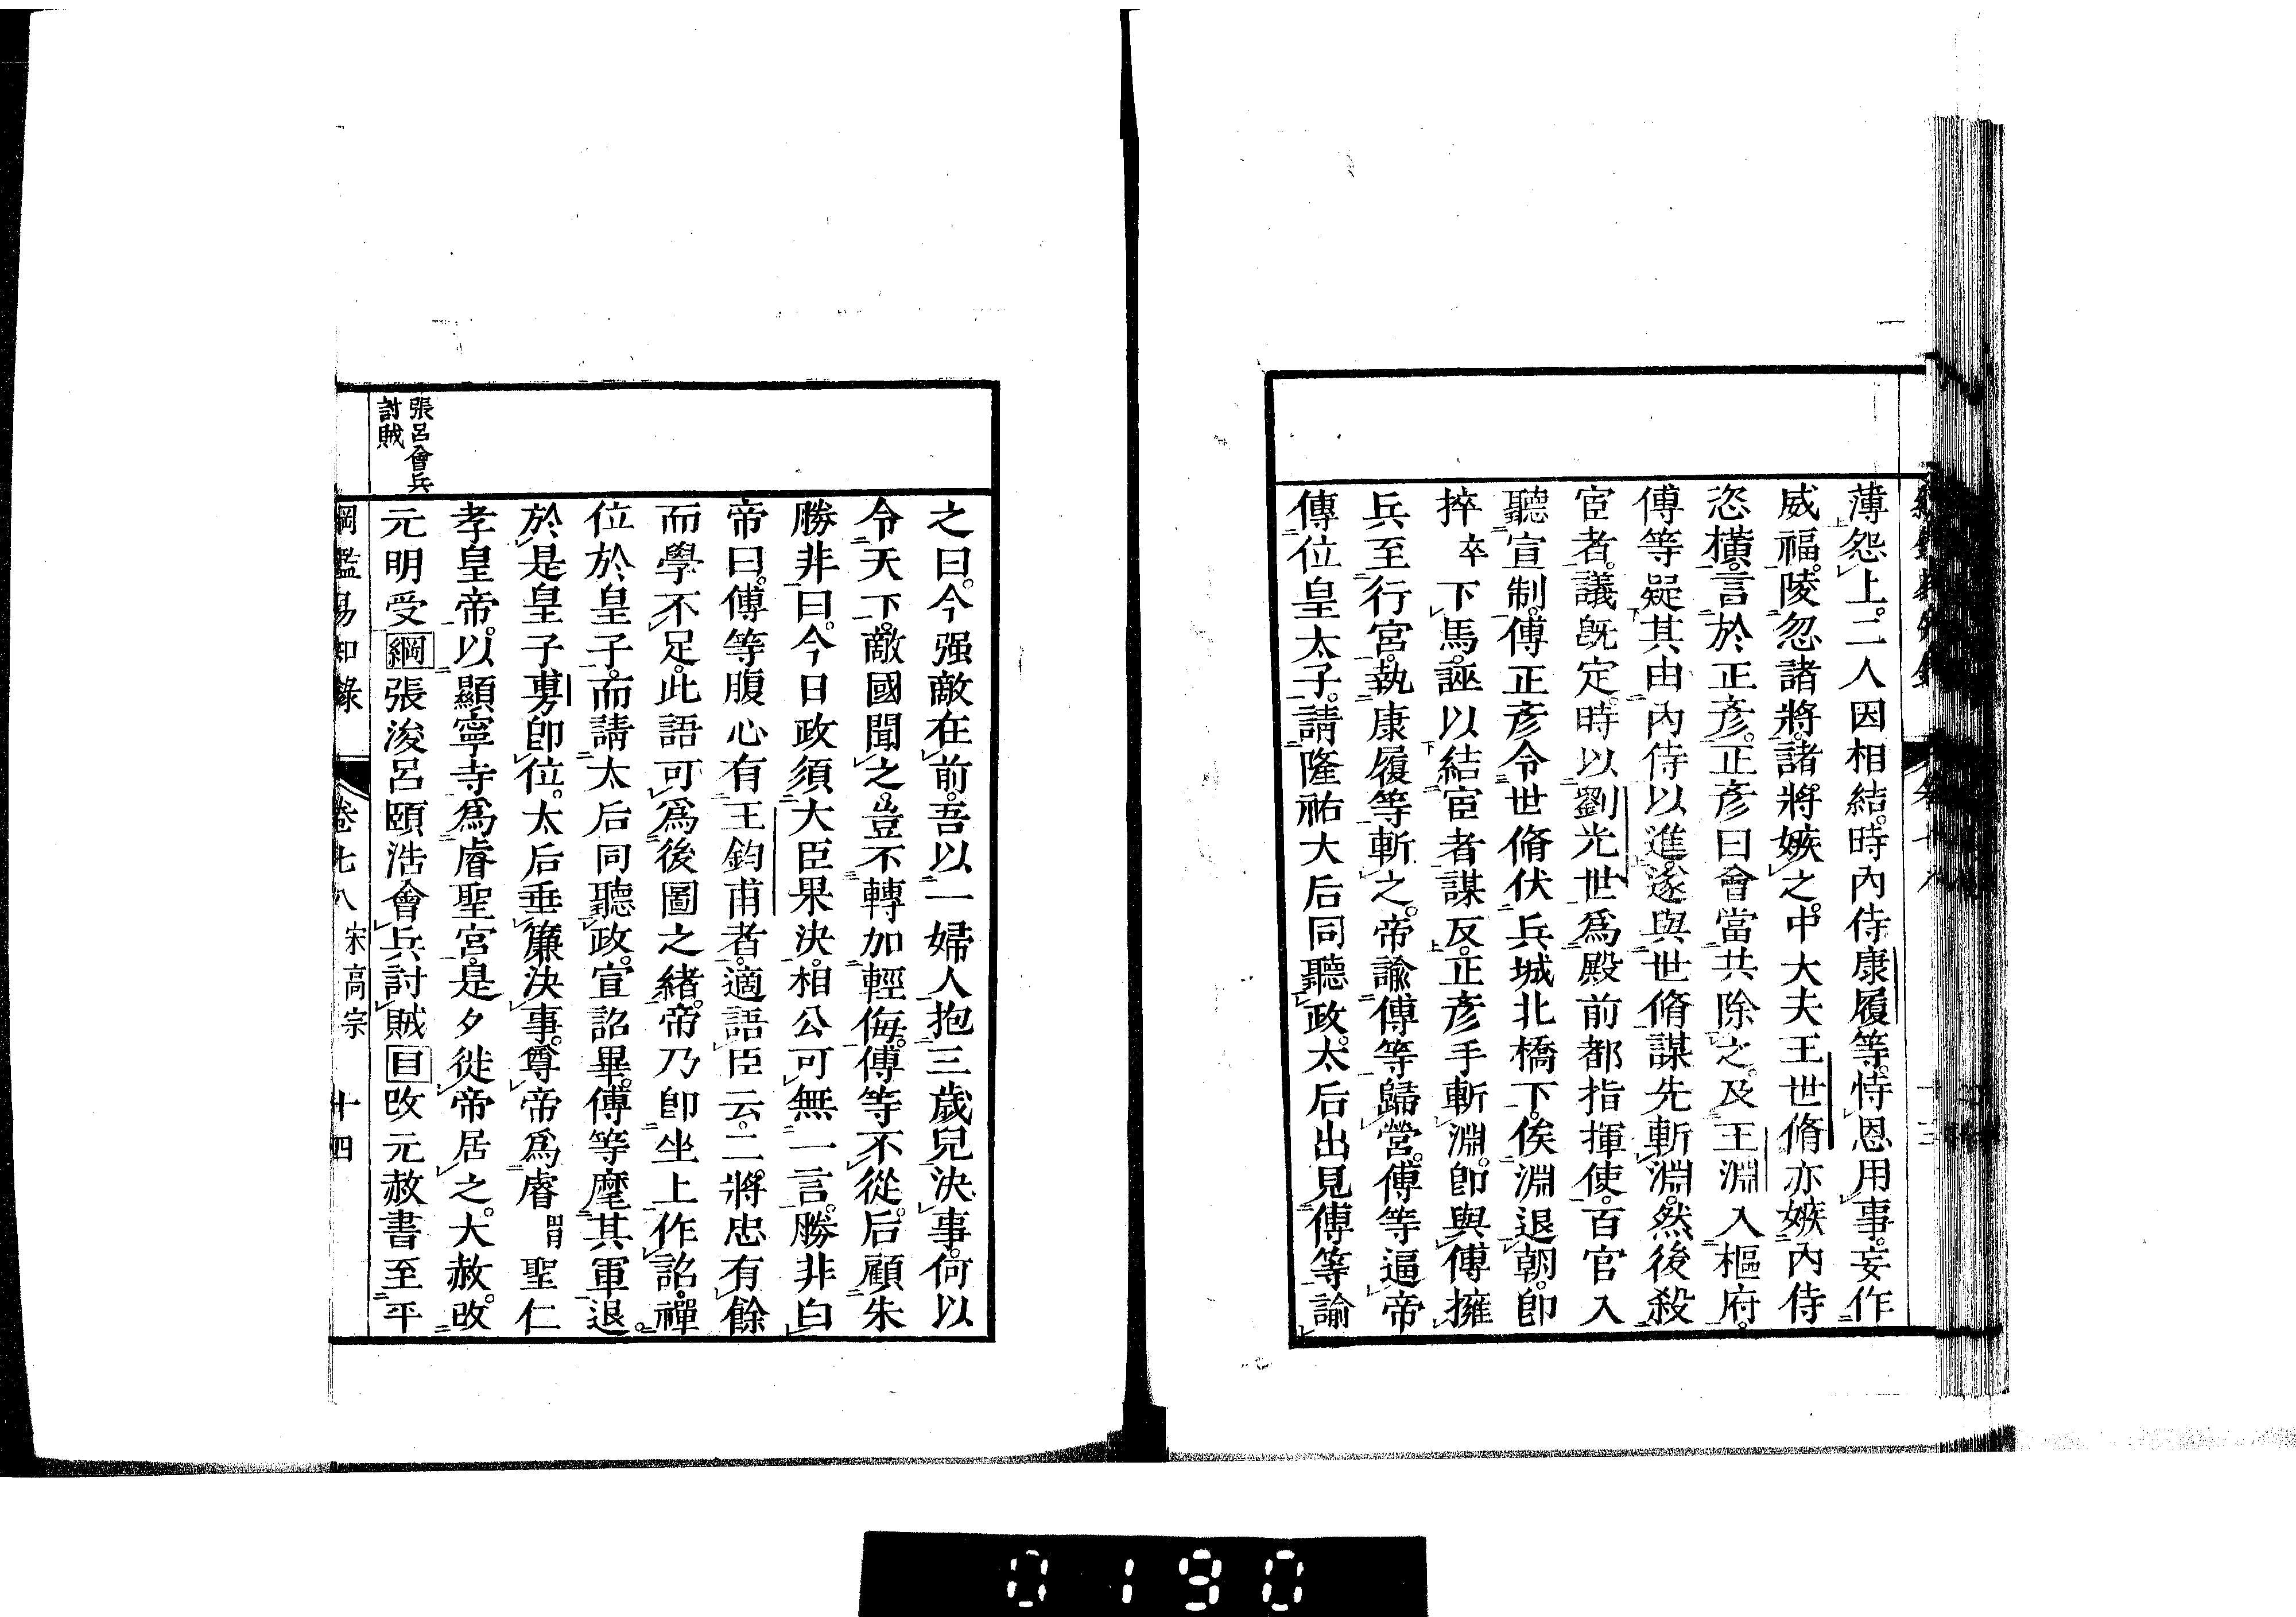 薄怨上。二人因相結。時內侍康履等。恃恩用事。妄作
威福。陵忽諸將。諸將嫉之。中大夫王世脩亦嫉內侍
恣橫。言於正彥。正彥曰會當共除之。及王淵入樞府。
傅等疑其由內侍以進。遂與世脩謀先斬淵。然後殺
宦者。議旣定。時以劉光世爲殿前都指揮使。百官入
聽宣制。傅正彥令世脩伏兵城北橋下。俟淵退朝。卽
捽卒下馬。誣以結宦者謀反。正彥手斬淵。卽與傅擁
兵至行宮。執康履等斬之。帝諭傅等歸營。傅等逼帝
傳位皇太子。請隆祐大后同聽政。太后出見傅等諭
之曰。今强敵在前。吾以一婦人抱三歲兒決事。何以
令天下。敵國聞之。豈不轉加輕侮。傅等不從。后顧朱
勝非曰。今日政須大臣果決。相公可無一言。勝非白
帝曰。傅等腹心有王鈞甫者。適語臣云。二將忠有餘
而學不足。此語可爲後圖之緒。帝乃卽坐上作詔。禪
位於皇子。而請太后同聽政。宣詔畢。傅等麾其軍退。
於是皇子旉卽位。太后垂簾決事。尊帝爲睿聖仁
孝皇帝。以顯寧寺爲睿聖宮。是夕徙帝居之。大赦。改
元明受綱張浚呂頤浩會兵討賊目改元赦書至平
張呂會兵
討賊
綱鑑易知錄 卷七八 宋高宗 十四
0190